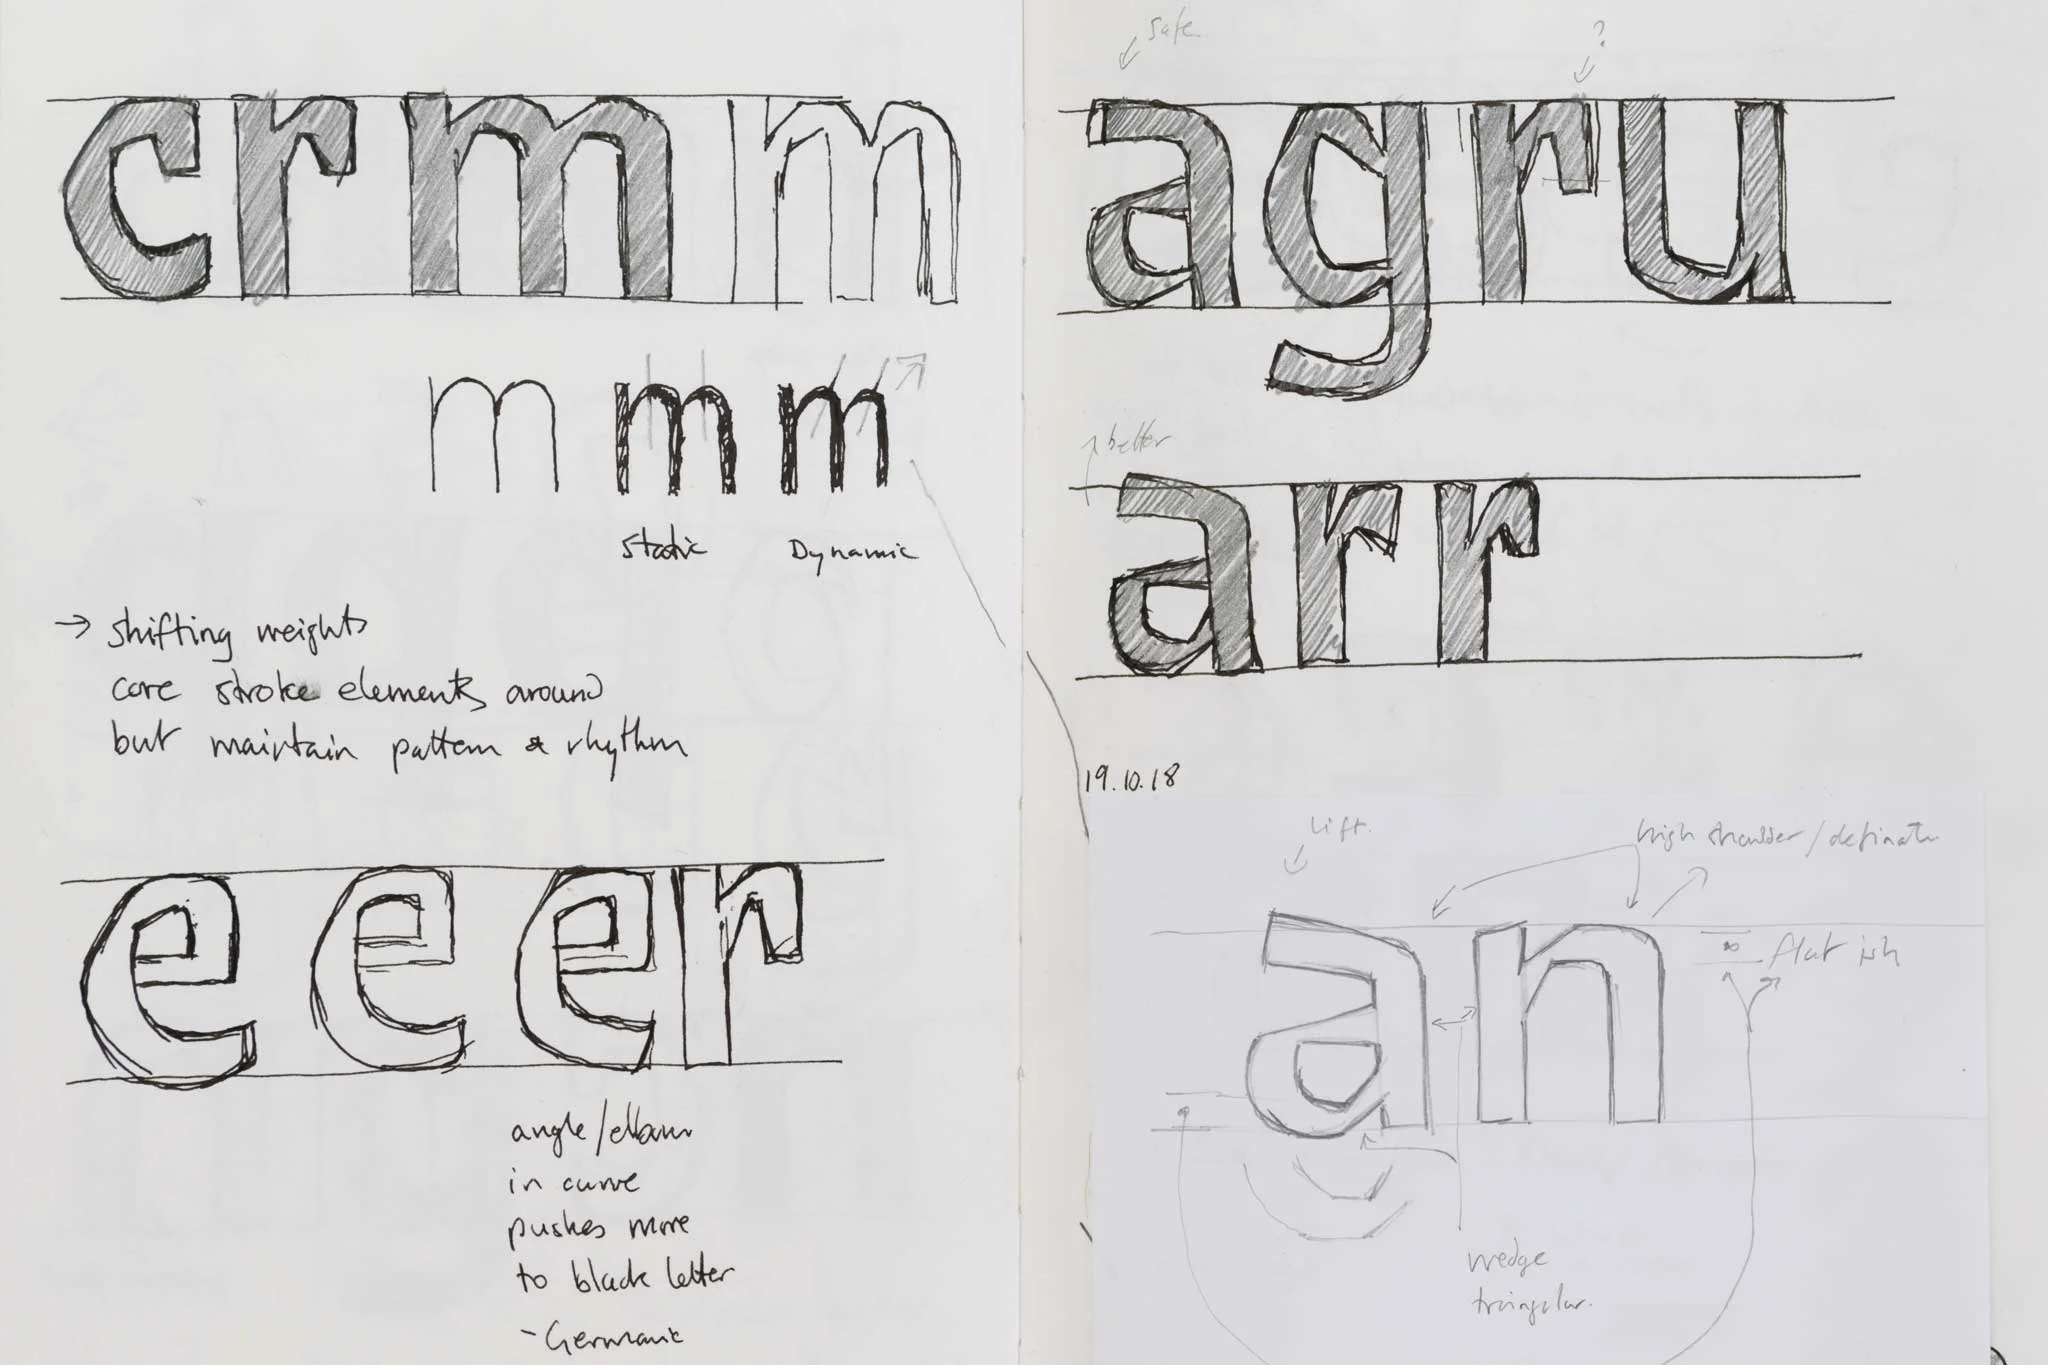 crmm
mmm
static
Dynamic
→ shifting weights
core stroke elements around
but maintain pattern & rhythm
eeer
angle/elbow
in curve
pushes more
to black letter
- Germanic
safe
?
agru
better
arr
19.10.18
Lift.
high shoulder/definate
an
flat ish
wedge
triangular.